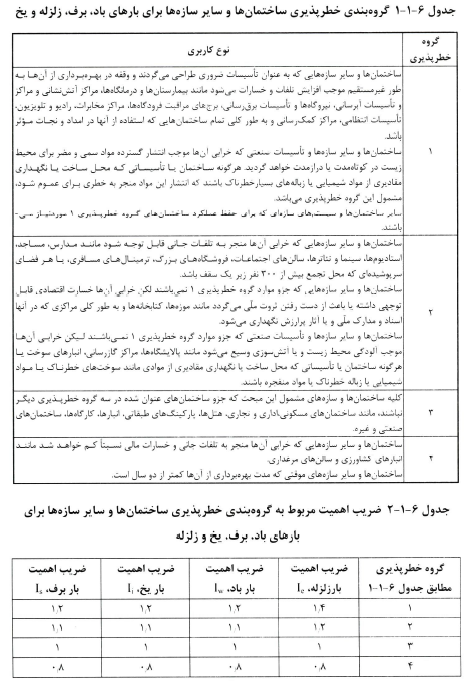 جدول ۶-۱-۱ گروه‌بندی خطرپذیری ساختمان‌ها و سایر سازه‌ها برای بارهای باد، برف، زلزله و یخ
گروه خطرپذیری
نوع کاربری
۱
ساختمان‌ها و سایر سازه‌هایی که به عنوان تأسیسات ضروری طراحی می‌گردند و وقفه در بهره‌برداری از آن‌ها به
طور غیرمستقیم موجب افزایش تلفات و خسارات می‌شود مانند بیمارستان‌ها و درمانگاه‌ها، مراکز آتش‌نشانی و مراکز
و تأسیسات آبرسانی، نیروگاه‌ها و تأسیسات برق‌رسانی، برج‌های مراقبت فرودگاه‌ها، مراکز مخابرات، رادیو و تلویزیون،
تأسیسات انتظامی، مراکز کمک‌رسانی و به طور کلی تمام ساختمان‌هایی که استفاده از آنها در امداد و نجات مؤثر
باشد.
ساختمان‌ها و سایر سازه‌ها و تأسیسات صنعتی که خرابی آن‌ها موجب انتشار گسترده مواد سمی و مضر برای محیط
زیست در کوتاه‌مدت یا درازمدت خواهد گردید. هرگونه ساختمان یا تأسیساتی که محل ساخت یا نگهداری
مقادیری از مواد شیمیایی یا زباله‌های بسیارخطرناک باشند که انتشار این مواد منجر به خطری برای عموم شود،
مشمول این گروه خطرپذیری می‌باشد.
سایر ساختمان‌ها و سیستم‌های سازه‌ای که برای حفظ عملکرد ساختمان‌های گروه خطرپذیری ۱ موردنیاز می-
باشند.
۲
ساختمان‌ها و سایر سازه‌هایی که خرابی آن‌ها منجر به تلفات جانی قابل توجه شود مانند مدارس، مساجد،
استادیوم‌ها، سینما و تئاترها، سالن‌های اجتماعات، فروشگاه‌های بزرگ، ترمینال‌های مسافری، یا هر فضای
سرپوشیده‌ای که محل تجمع بیش از ۳۰۰ نفر زیر یک سقف باشد.
ساختمان‌ها و سایر سازه‌هایی که جزو موارد گروه خطرپذیری ۱ نمی‌باشند لکن خرابی آن‌ها خسارت اقتصادی قابل
توجهی داشته یا باعث از دست رفتن ثروت ملّی می‌گردد مانند موزه‌ها، کتابخانه‌ها و به طور کلی مراکزی که در آنها
اسناد و مدارک ملّی و یا آثار پرارزش نگهداری می‌شود.
ساختمان‌ها و سایر سازه‌ها و تأسیسات صنعتی که جزو موارد گروه خطرپذیری ۱ نمی‌باشند لیکن خرابی آن‌ها
موجب آلودگی محیط زیست و یا آتش‌سوزی وسیع می‌شود مانند پالایشگاه‌ها، مراکز گازرسانی، انبارهای سوخت یا
هرگونه ساختمان یا تأسیساتی که محل ساخت یا نگهداری مقادیری از موادی مانند سوخت‌های خطرناک یا مواد
شیمیایی یا زباله خطرناک یا مواد منفجره باشند.
۳
کلیه ساختمان‌ها و سازه‌های مشمول این مبحث که جزو ساختمان‌های عنوان شده در سه گروه خطرپذیری دیگر
نباشند، مانند ساختمان‌های مسکونی،اداری و تجاری، هتل‌ها، پارکینگ‌های طبقاتی، انبارها، کارگاه‌ها، ساختمان‌های
صنعتی و غیره.
۴
ساختمان‌ها و سایر سازه‌هایی که خرابی آن‌ها منجر به تلفات جانی و خسارات مالی نسبتاً کم خواهد شد مانند
انبارهای کشاورزی و سالن‌های مرغداری.
ساختمان‌ها و سایر سازه‌های موقتی که مدت بهره‌برداری از آن‌ها کمتر از دو سال است.
جدول ۶-۱-۲ ضریب اهمیت مربوط به گروه‌بندی خطرپذیری ساختمان‌ها و سایر سازه‌ها برای
بارهای باد، برف، یخ و زلزله
گروه خطرپذیری مطابق جدول ۶-۱-۱ | ضریب اهمیت بارزلزله، Ie | ضریب اهمیت بار باد، Iw | ضریب اهمیت بار یخ، Ii | ضریب اهمیت بار برف، Is
۱ ۱٫۴ ۱٫۲ ۱٫۲ ۱٫۲
۲ ۱٫۲ ۱٫۱ ۱٫۱ ۱٫۱
۳ ۱ ۱ ۱ ۱
۴ ۰٫۸ ۰٫۸ ۰٫۸ ۰٫۸